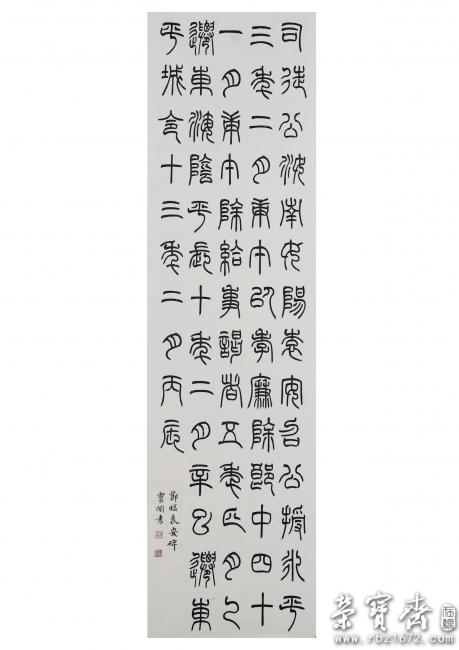 司徒公汝南女陽袁安召公授永平
三年二月庚午以孝廉除郎中四十
一月庚午除給事謁者五年四月乙
遷東海陰平長十年二月辛巳遷東
平城令十三年二月丙辰
節臨袁安碑
雲書
榮寶齋
在線
www.rbz1672.com